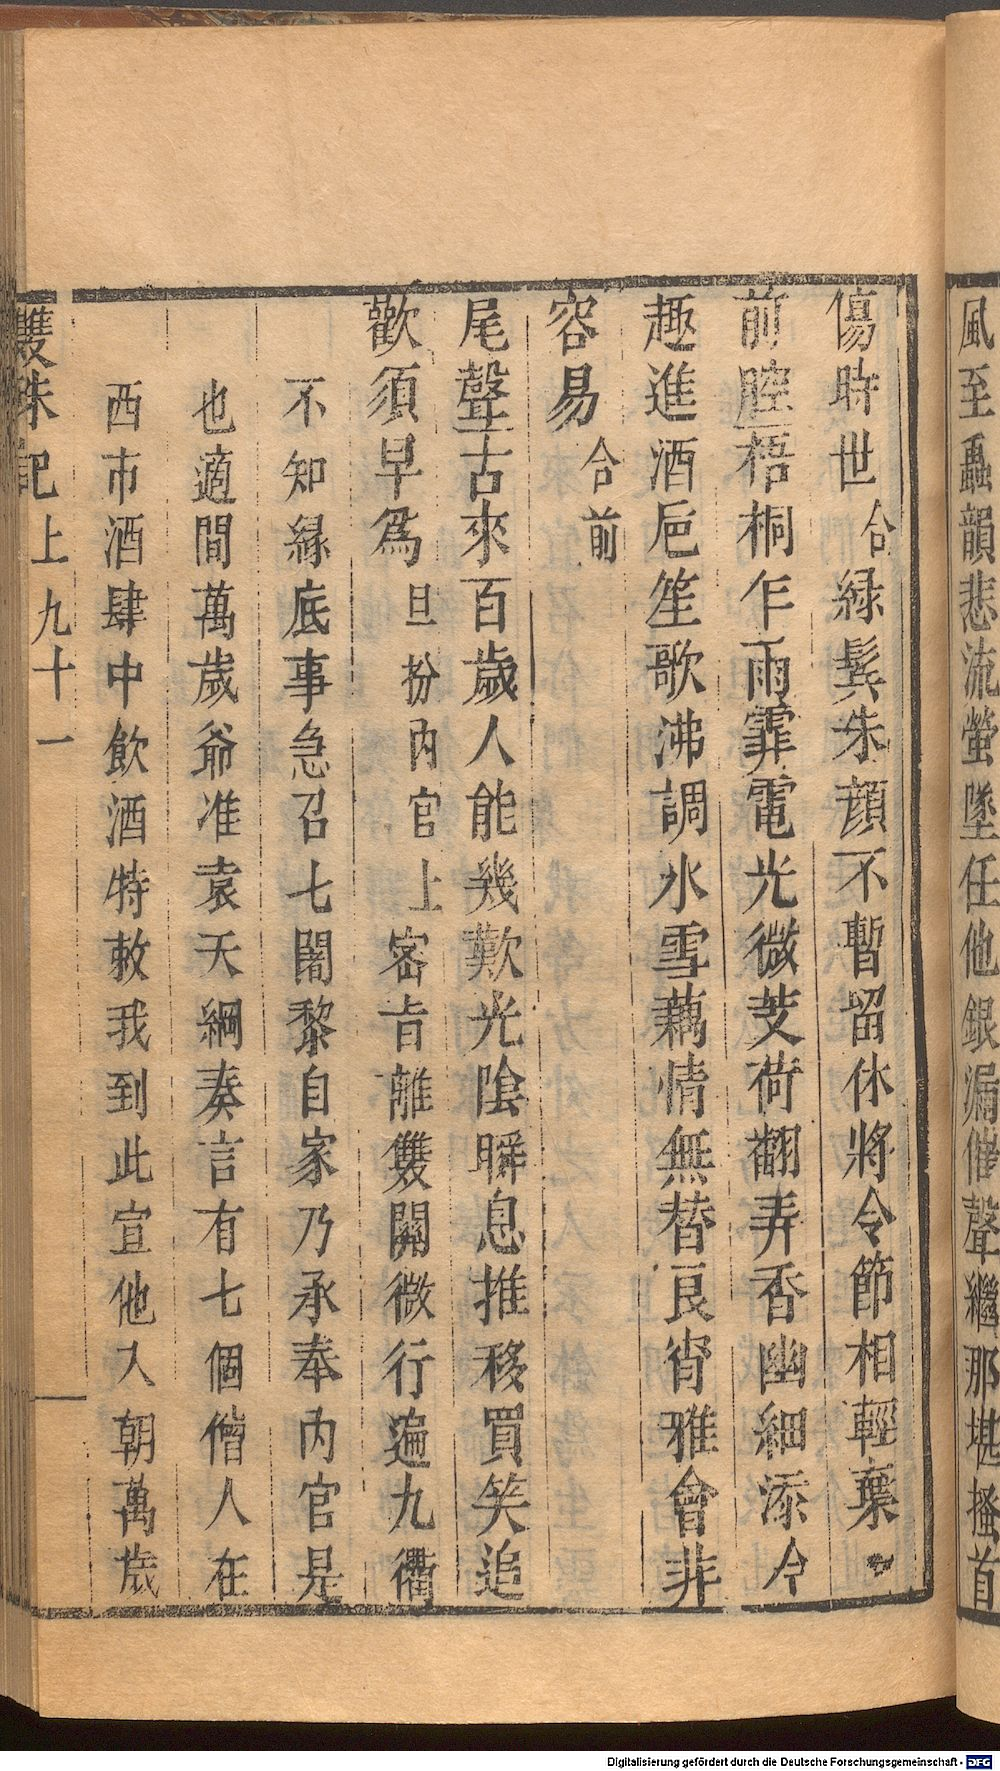 風至蟲韻悲流螢墜任他銀漏催聲繼那堪搔首
傷時世合緑鬂朱顔不暫留休將令節相輕棄〻
前腔梧桐乍雨霏電光微芰荷翻弄香幽細添今
趣進酒巵笙歌沸調氷雪藕情無替良宵雅會非
容易合前
尾聲古來百歲人能幾歎光陰瞬息推移買笑追
歡須早爲旦扮內官上密旨離雙闕微行遍九衢
不知緣底事急召七闍黎自家乃承奉内官是
也適間萬歲爺准袁天綱奏言有七個僧人在
西市酒肆中飲酒特敕我到此宣他入朝萬歲
雙珠記上 九十一
Digitalisierung gefördert durch die Deutsche Forschungsgemeinschaft - DFG